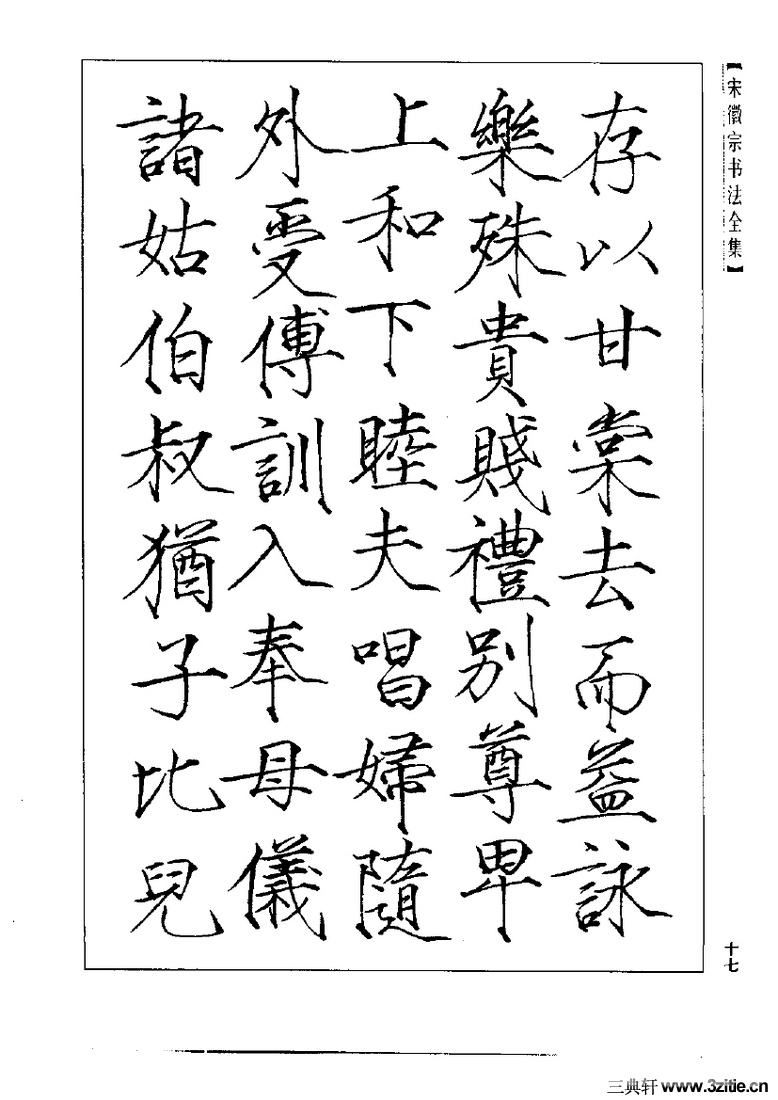 【宋徽宗书法全集】
存以甘棠去而益詠
樂殊貴賤禮別尊卑
上和下睦夫唱婦隨
外受傅訓入奉母儀
諸姑伯叔猶子比兒
十七
三典轩 www.3zitie.cn